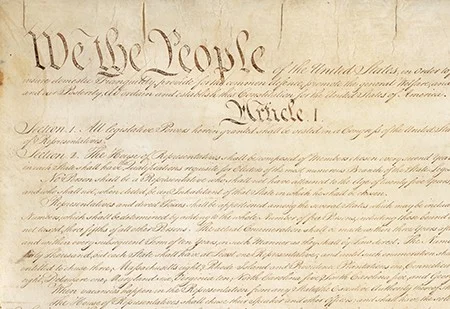 We the People of the United States, in Order to
insure domestic Tranquility, provide for the common defence, promote the general Welfare, and
and our Posterity, do ordain and establish this Constitution for the United States of America.
Article. I.
Section. 1. All legislative Powers herein granted shall be vested in a Congress of the United Stat
of Representatives.
Section. 2. The House of Representatives shall be composed of Members chosen every second Year
in each State shall have Qualifications requisite for Electors of the most numerous Branch of the State Leg
No Person shall be a Representative who shall not have attained to the Age of twenty five Years
and who shall not, when elected, be an Inhabitant of that State in which he shall be chosen.
Representatives and direct Taxes shall be apportioned among the several States which may be includ
Numbers, which shall be determined by adding to the whole Number of free Persons, including those bound
not taxed, three fifths of all other Persons. The actual Enumeration shall be made within three Years
and within every subsequent Term of ten Years, in such Manner as they shall by Law direct. The Num
thirty Thousand, but each State shall have at Least one Representative; and until such enumeration shall
entitled to chuse three, Massachusetts eight, Rhode Island and Providence Plantations one, Connecticut
eight, Delaware one, Maryland six, Virginia ten, North Carolina five, South Carolina five, and Georg
When vacancies happen in the Representation from any State, the Executive Authority thereof
the House of Representatives shall chuse their Speaker and other Officers; and shall have the